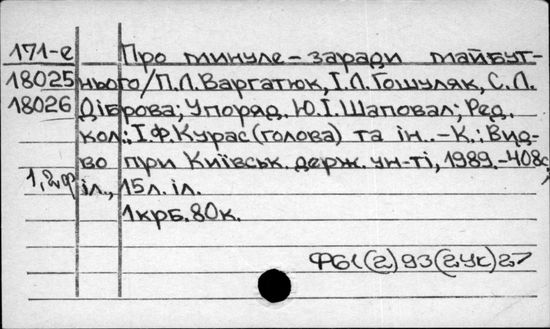 171-е Про минуле-заради майбут-
18025 нього/П.Л.Варгатюк, І.Л.Гошуляк, С.Л.
18026 Діброва; Упоряд. Ю.І.Шаповал; Ред.
кол.: І.Ф.Курас(голова) та ін.-К.: Вид-
во при Київськ. держ. ун-ті, 1989.-408с,
1,2ф іл., 15л. іл.
1крб.80к.
Ф61(2)93(2Ук)27